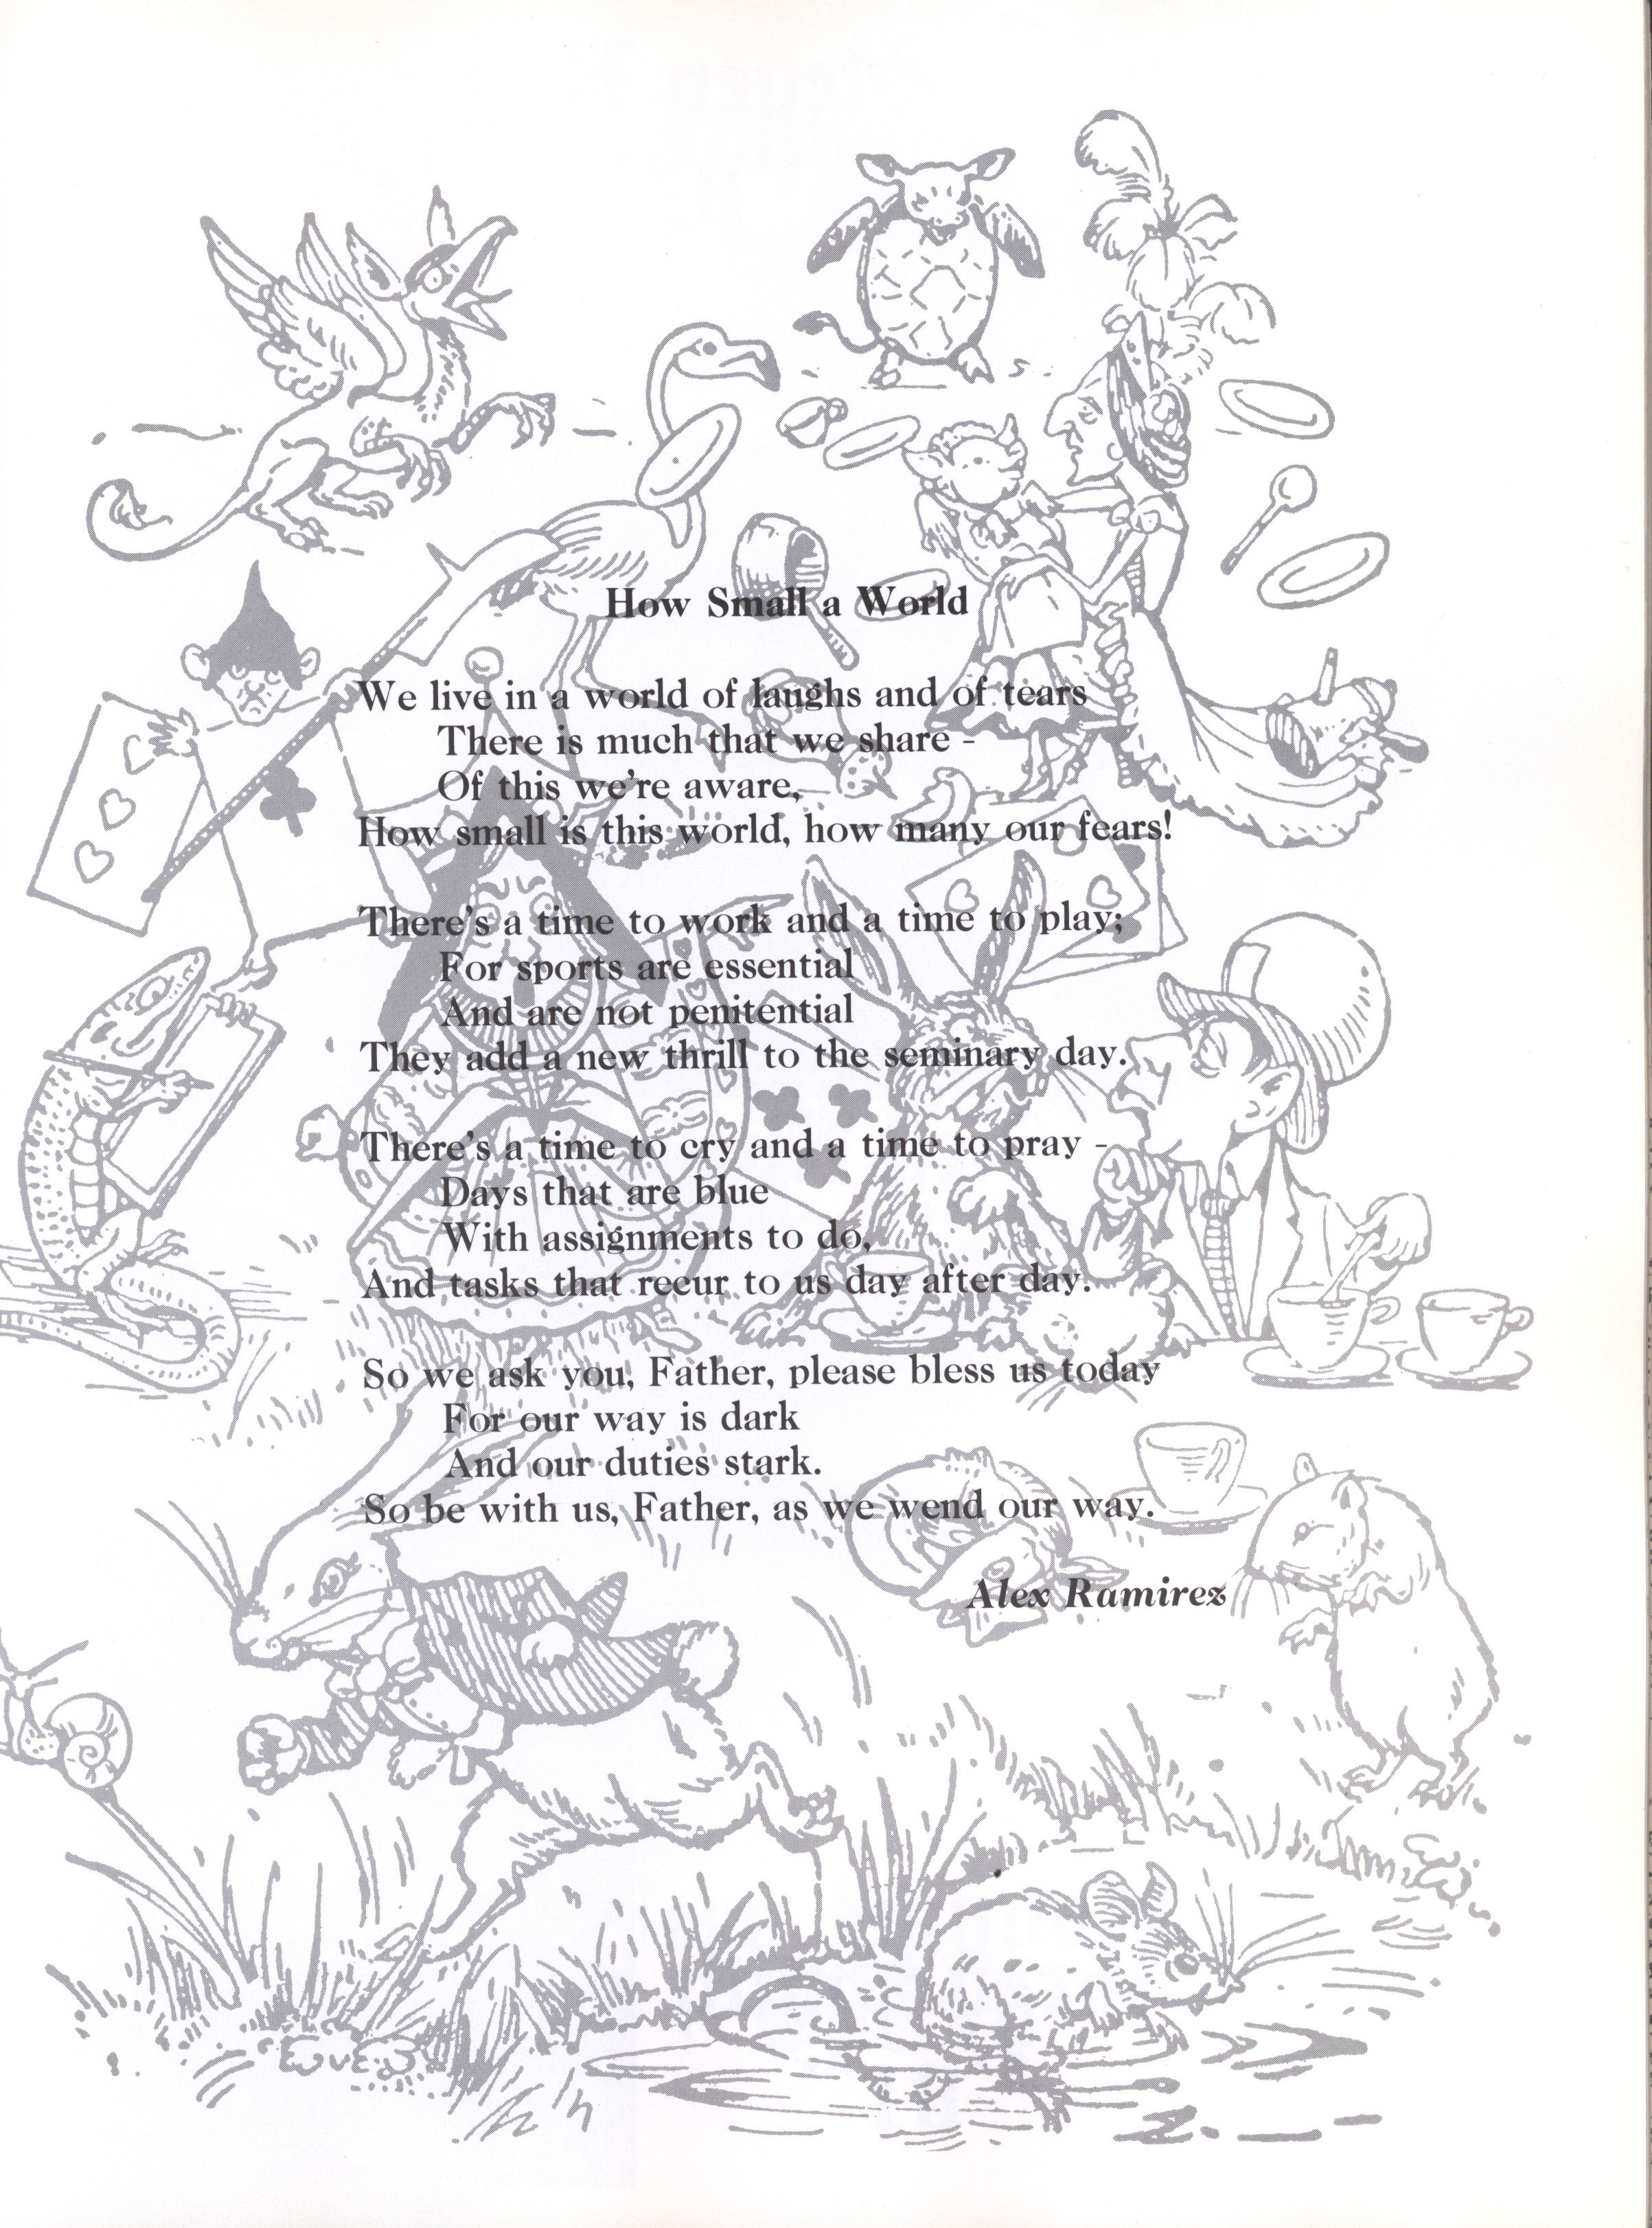 How Small a World
We live in a world of laughs and of tears
There is much that we share -
Of this we're aware,
How small is this world, how many our fears!
There's a time to work and a time to play;
For sports are essential
And are not penitential
They add a new thrill to the seminary day.
There's a time to cry and a time to pray -
Days that are blue
With assignments to do,
And tasks that recur to us day after day.
So we ask you, Father, please bless us today
For our way is dark
And our duties stark.
So be with us, Father, as we wend our way.
Alex Ramirez